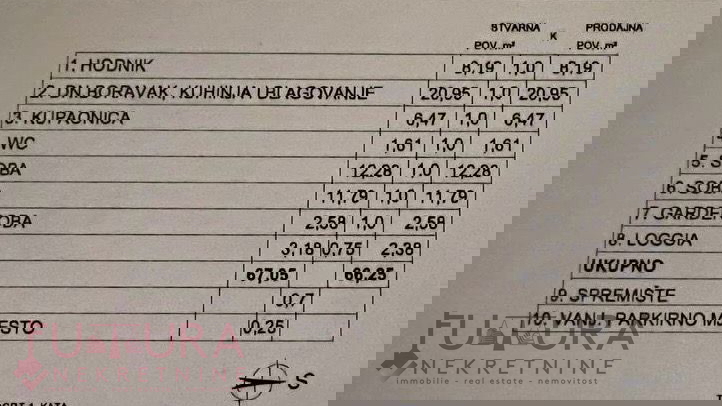 STVARNA K PRODAJNA
POV. m² POV. m²
1. HODNIK 8,19 1,0 8,19
2. DN.BORAVAK, KUHINJA I BLAGOVANJE 20,95 1,0 20,95
3. KUPAONICA 6,47 1,0 6,47
WC 1,61 1,0 1,61
5. SOBA 12,28 1,0 12,28
6. SOBA 11,79 1,0 11,79
7. GARDEROBA 2,58 1,0 2,58
8. LOGGIA 3,18 0,75 2,38
UKUPNO 67,05 66,25
9. SPREMIŠTE 0,7
10. VANJ. PARKIRNO MJESTO 0,25
S
FUTURA
NEKRETNINE
immobilie - real estate - nemovitost
FUTURA
NEKRETNINE